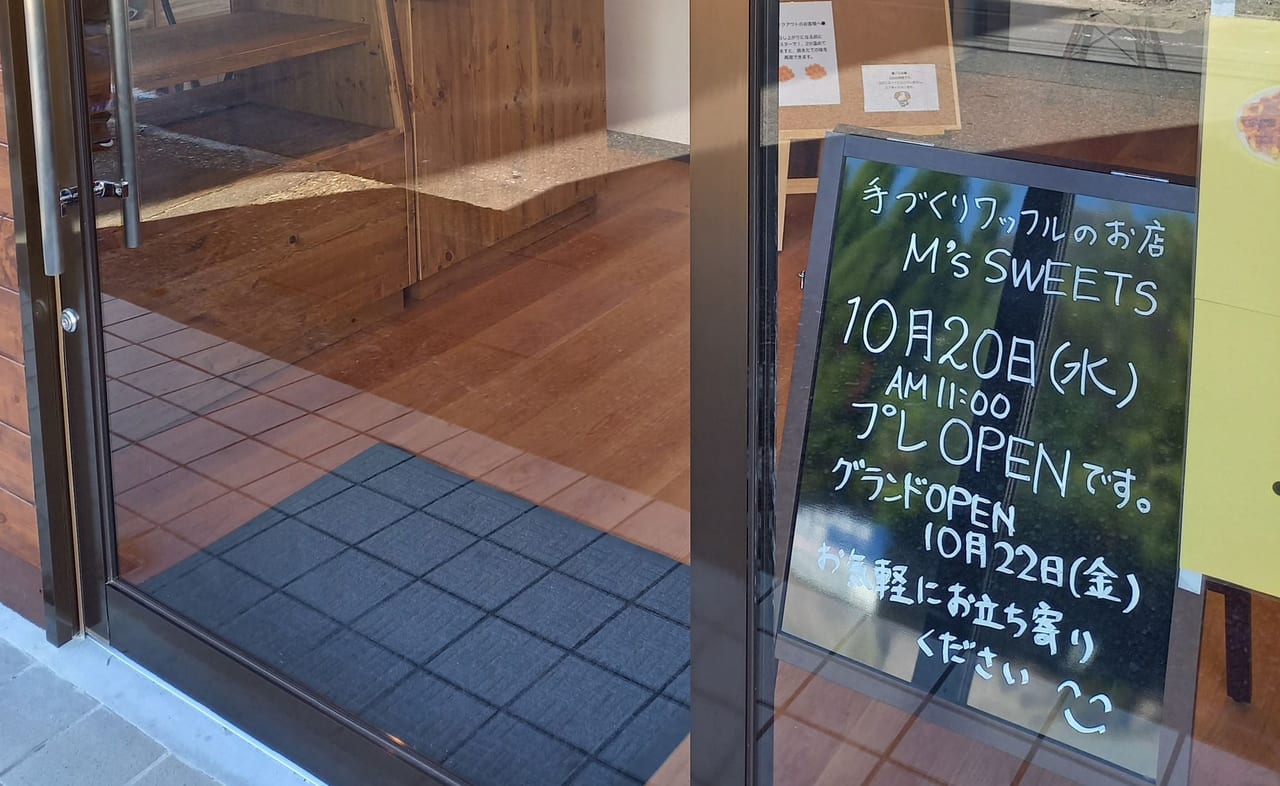 手づくりワッフルのお店
M's SWEETS
10月20日(水)
AM 11:00
プレ OPENです。
グランドOPEN
10月22日(金)
お気軽にお立ち寄り
ください